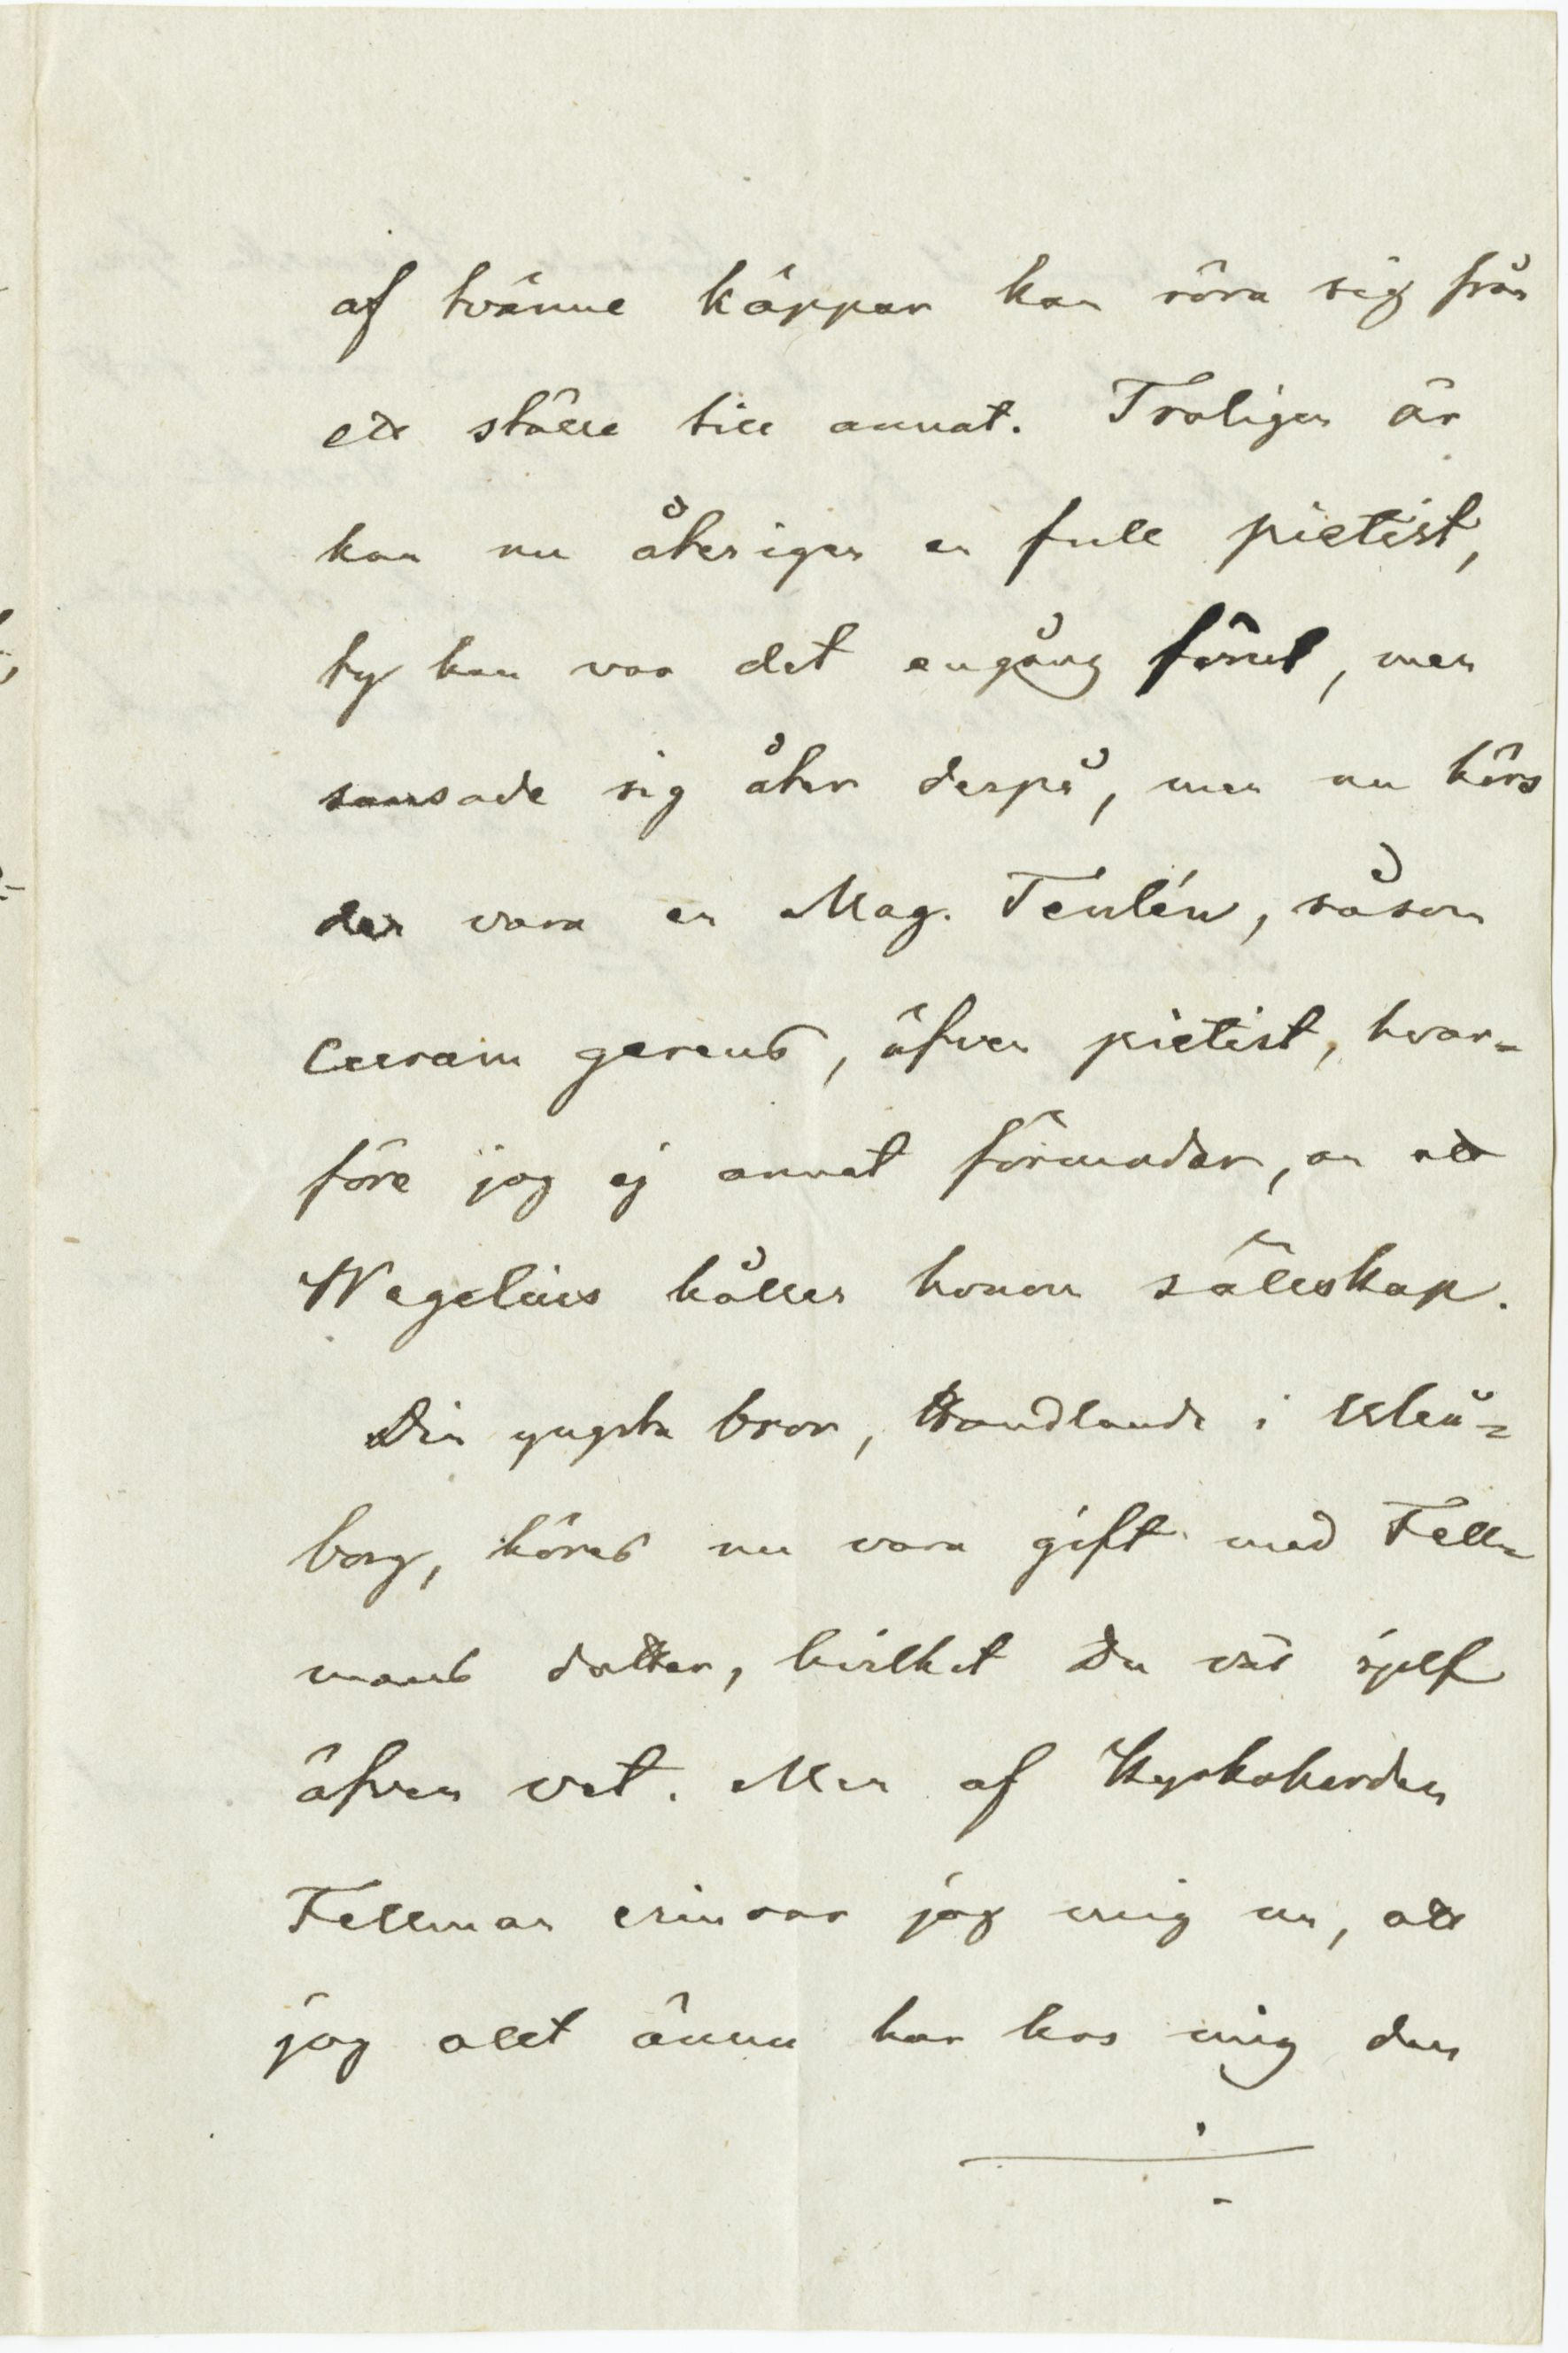 af tvänne käppar kan röra sig från
ett ställe till annat. Troligen är
han nu återigen en full pietist,
ty han var det engång förut, men
sansade sig åter derpå, men nu hörs
der vara en Mag. Tenlén, såsom
Curam gerens, äfven pietist, hvar=
före jag ej annat förmodar, än att
Wegelius håller honom sälskap.
Din yngsta bror, Handlande i Uleå=
borg, höres nu vara gift med Fell=
mans dotter, hvilket Du väl sjelf
äfven vet. Men af Kyrkoherden
Fellman erinrar jag mig nu, att
jag allt ännu har hos mig den